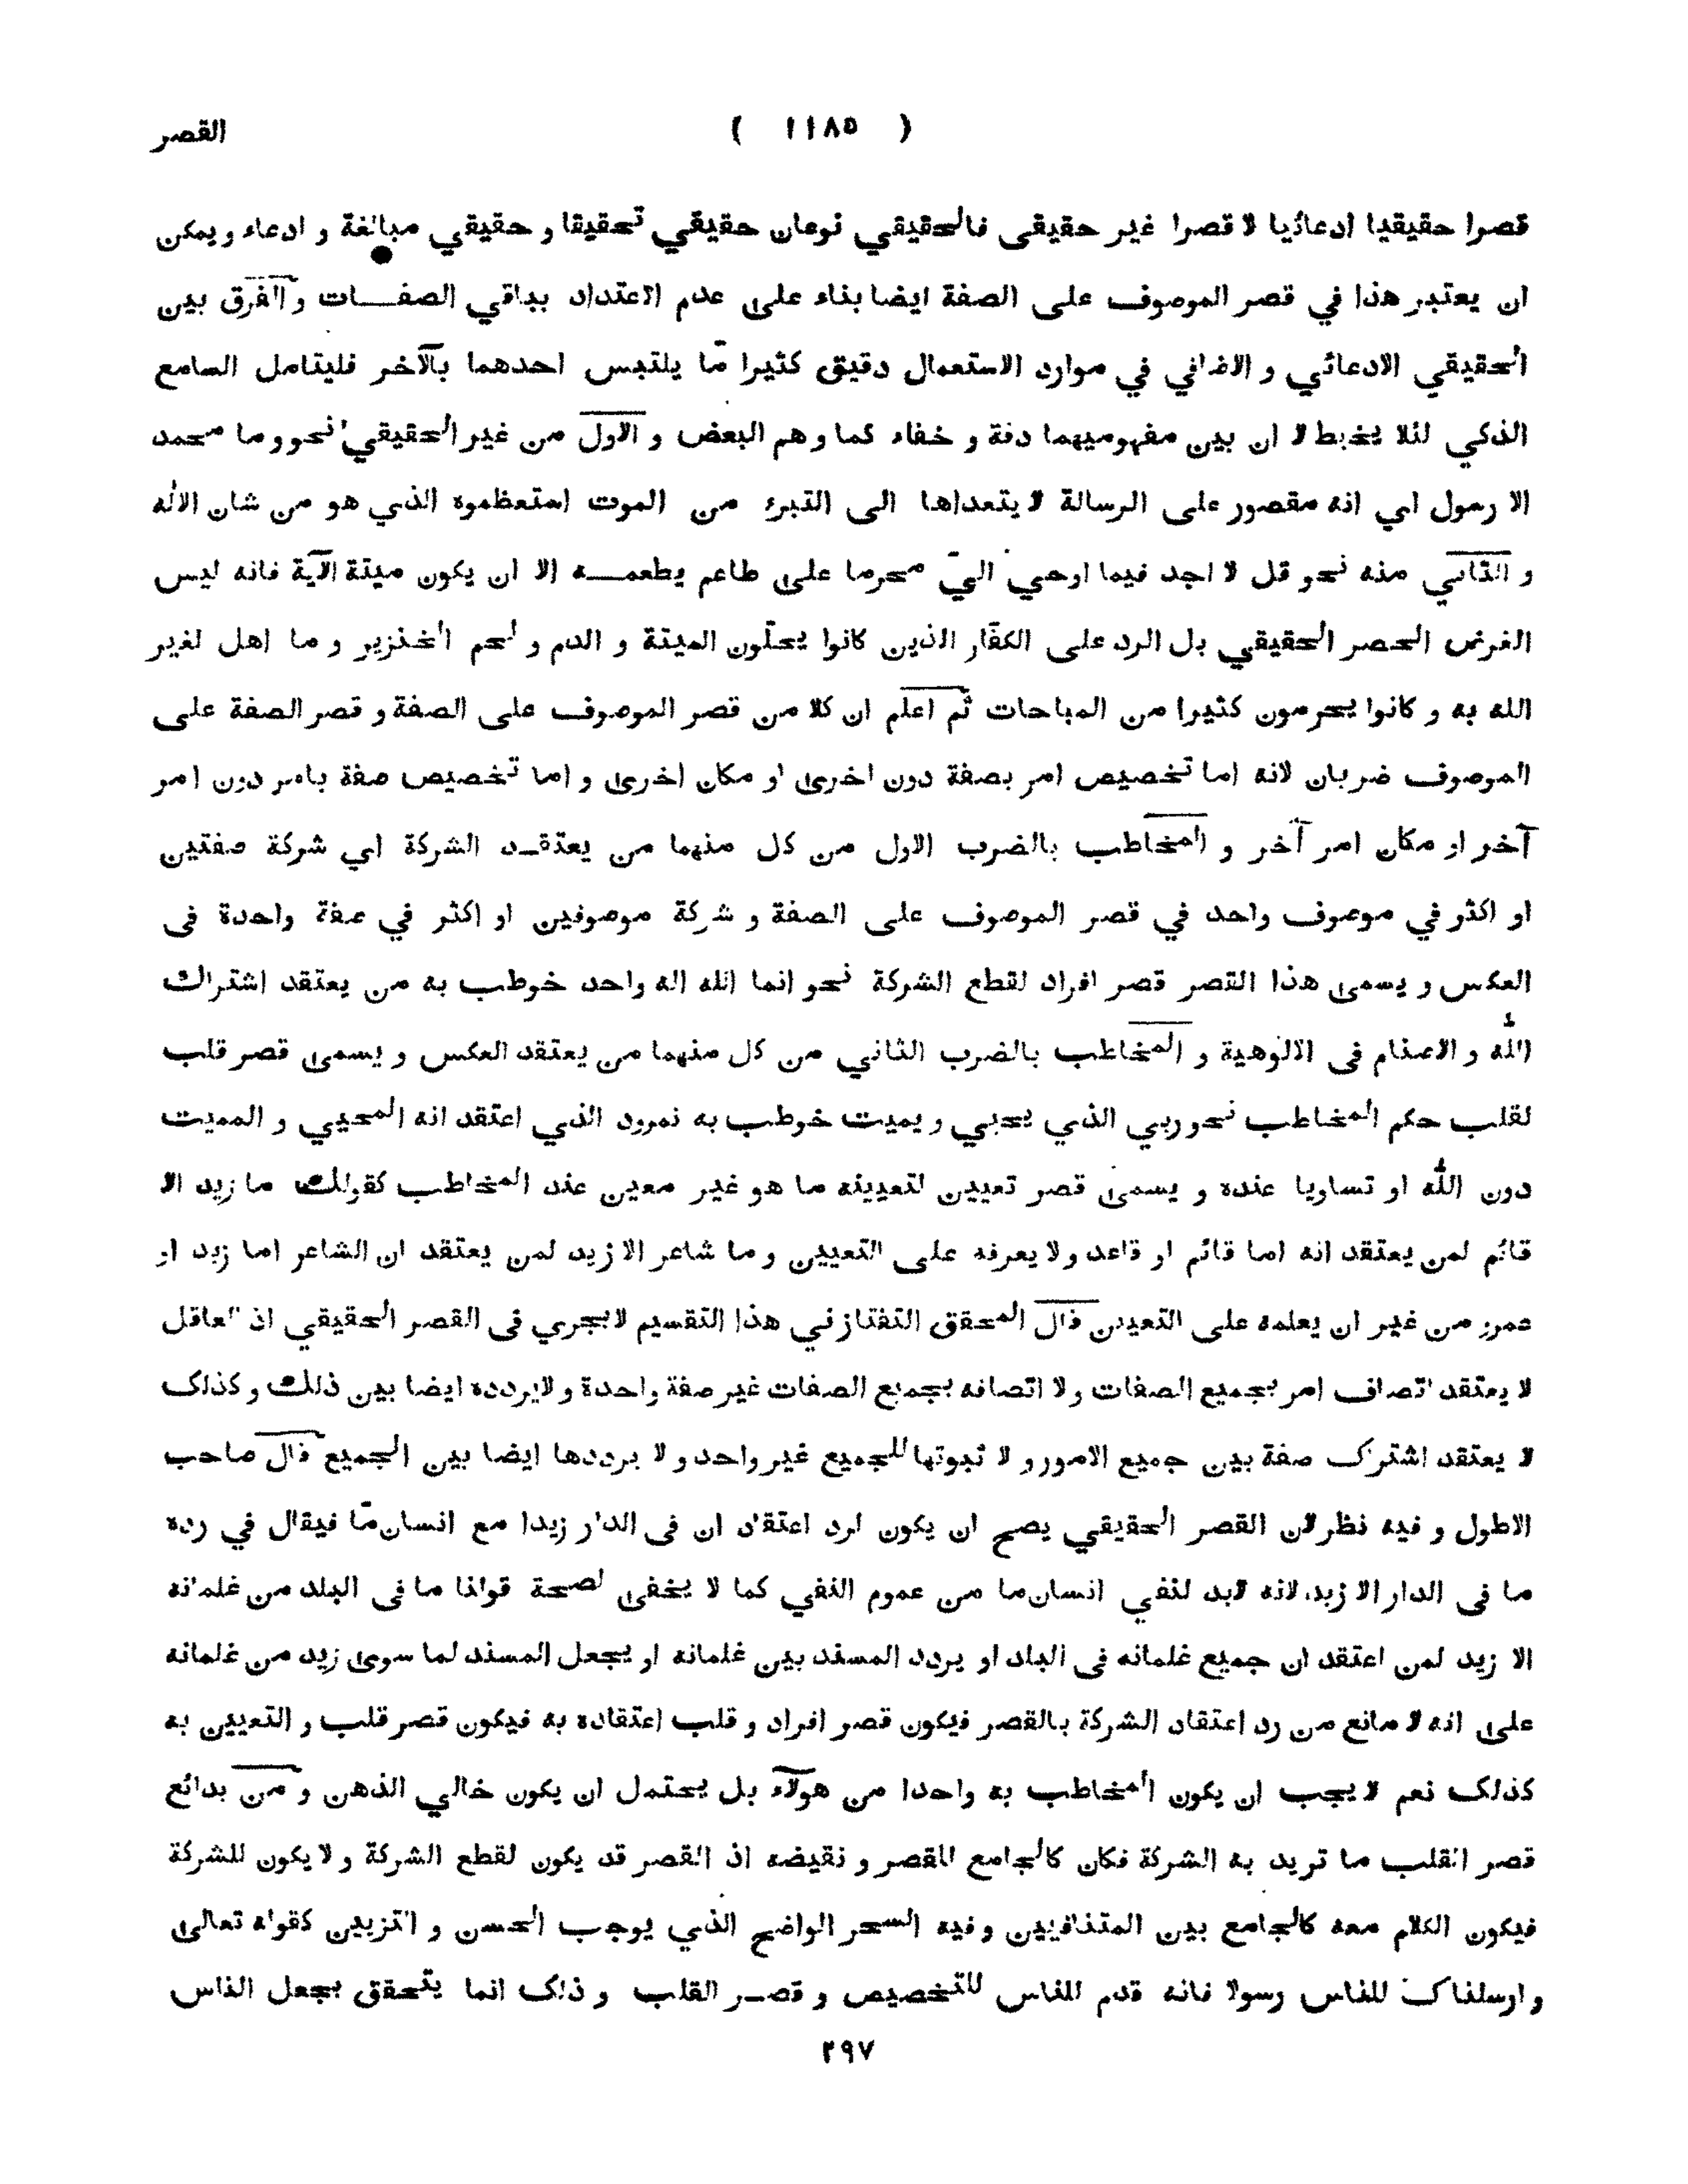 القصر
( ١١٨٥ )
قصرا حقيقيا ادعائيا لا قصرا غير حقيقى فالحقيقي نوعان حقيقي تحقيقا و حقيقي مبالغة و ادعاء و يمكن
ان يعتبر هذا في قصر الموصوف على الصفة ايضا بناء على عدم الاعتداد بباقي الصفات و الفرق بين
الحقيقي الادعائي و الاضافي في موارد الاستعمال دقيق كثيرا مّا يلتبس احدهما بالآخر فليتامل السامع
الذكي لئلا يخبط لا ان بين مفهوميهما دقة و خفاء كما وهم البعض و الاول من غير الحقيقي نحو وما محمد
الا رسول اي انه مقصور على الرسالة لا يتعداها الى التبرئ من الموت استعظموه الذي هو من شان الاله
و الثاني منه نحو قل لا اجد فيما اوحي اليّ محرما على طاعم يطعمه الا ان يكون ميتة الآية فانه ليس
الغرض الحصر الحقيقي بل الرد على الكفّار الذين كانوا يحلّون الميتة و الدم و لحم الخنزير و ما اهل لغير
الله به و كانوا يحرمون كثيرا من المباحات ثم اعلم ان كلا من قصر الموصوف على الصفة و قصر الصفة على
الموصوف ضربان لانه اما تخصيص امر بصفة دون اخرى او مكان اخرى و اما تخصيص صفة بامر دون امر
آخر او مكان امر آخر و المخاطب بالضرب الاول من كل منهما من يعتقد الشركة اي شركة صفتين
او اكثر في موصوف واحد في قصر الموصوف على الصفة و شركة موصوفين او اكثر في صفة واحدة فى
العكس و يسمى هذا القصر قصر افراد لقطع الشركة نحو انما الله اله واحد خوطب به من يعتقد اشتراك
الله و الاصنام فى الالوهية و المخاطب بالضرب الثاني من كل منهما من يعتقد العكس و يسمى قصر قلب
لقلب حكم المخاطب نحو ربي الذي يحيي و يميت خوطب به نمرود الذي اعتقد انه المحيي و المميت
دون الله او تساويا عنده و يسمى قصر تعيين لتعيينه ما هو غير معين عند المخاطب كقولك ما زيد الا
قائم لمن يعتقد انه اما قائم او قاعد ولا يعرفه على التعيين و ما شاعر الا زيد لمن يعتقد ان الشاعر اما زيد او
عمرو من غير ان يعلمه على التعيين قال المحقق التفتازني هذا التقسيم لا يجري فى القصر الحقيقي اذ العاقل
لا يعتقد اتصاف امر بجميع الصفات و لا اتصافه بجميع الصفات غير صفة واحدة و لا يردده ايضا بين ذلك و كذلك
لا يعتقد اشتراك صفة بين جميع الامور و لا ثبوتها للجميع غير واحد و لا يرددها ايضا بين الجميع قال صاحب
الاطول و فيه نظر لان القصر الحقيقي يصح ان يكون لرد اعتقاد ان فى الدار زيدا مع انسان مّا فيقال في رده
ما فى الدار الا زيد لانه لابد لنفي انسان ما من عموم النفي كما لا يخفى لصحة قولنا ما فى البلد من غلمانه
الا زيد لمن اعتقد ان جميع غلمانه فى البلد او يردد المسند بين غلمانه او يجعل المسند لما سوى زيد من غلمانه
على انه لا مانع من رد اعتقاد الشركة بالقصر فيكون قصر افراد و قلب اعتقاده به فيكون قصر قلب و التعيين به
كذلك نعم لا يجب ان يكون المخاطب به واحدا من هؤلاء بل يحتمل ان يكون خالي الذهن و من بدائع
قصر القلب ما تريد به الشركة فكان كالجامع للقصر و نقيضه اذ القصر قد يكون لقطع الشركة و لا يكون للشركة
فيكون الكلام معه كالجامع بين المتنافيين و فيه السحر الواضح الذي يوجب الحسن و التزيين كقوله تعالى
و ارسلناك للناس رسولا فانه قدم للناس للتخصيص و قصر القلب و ذلك انما يتحقق بجعل الناس
٢٩٧